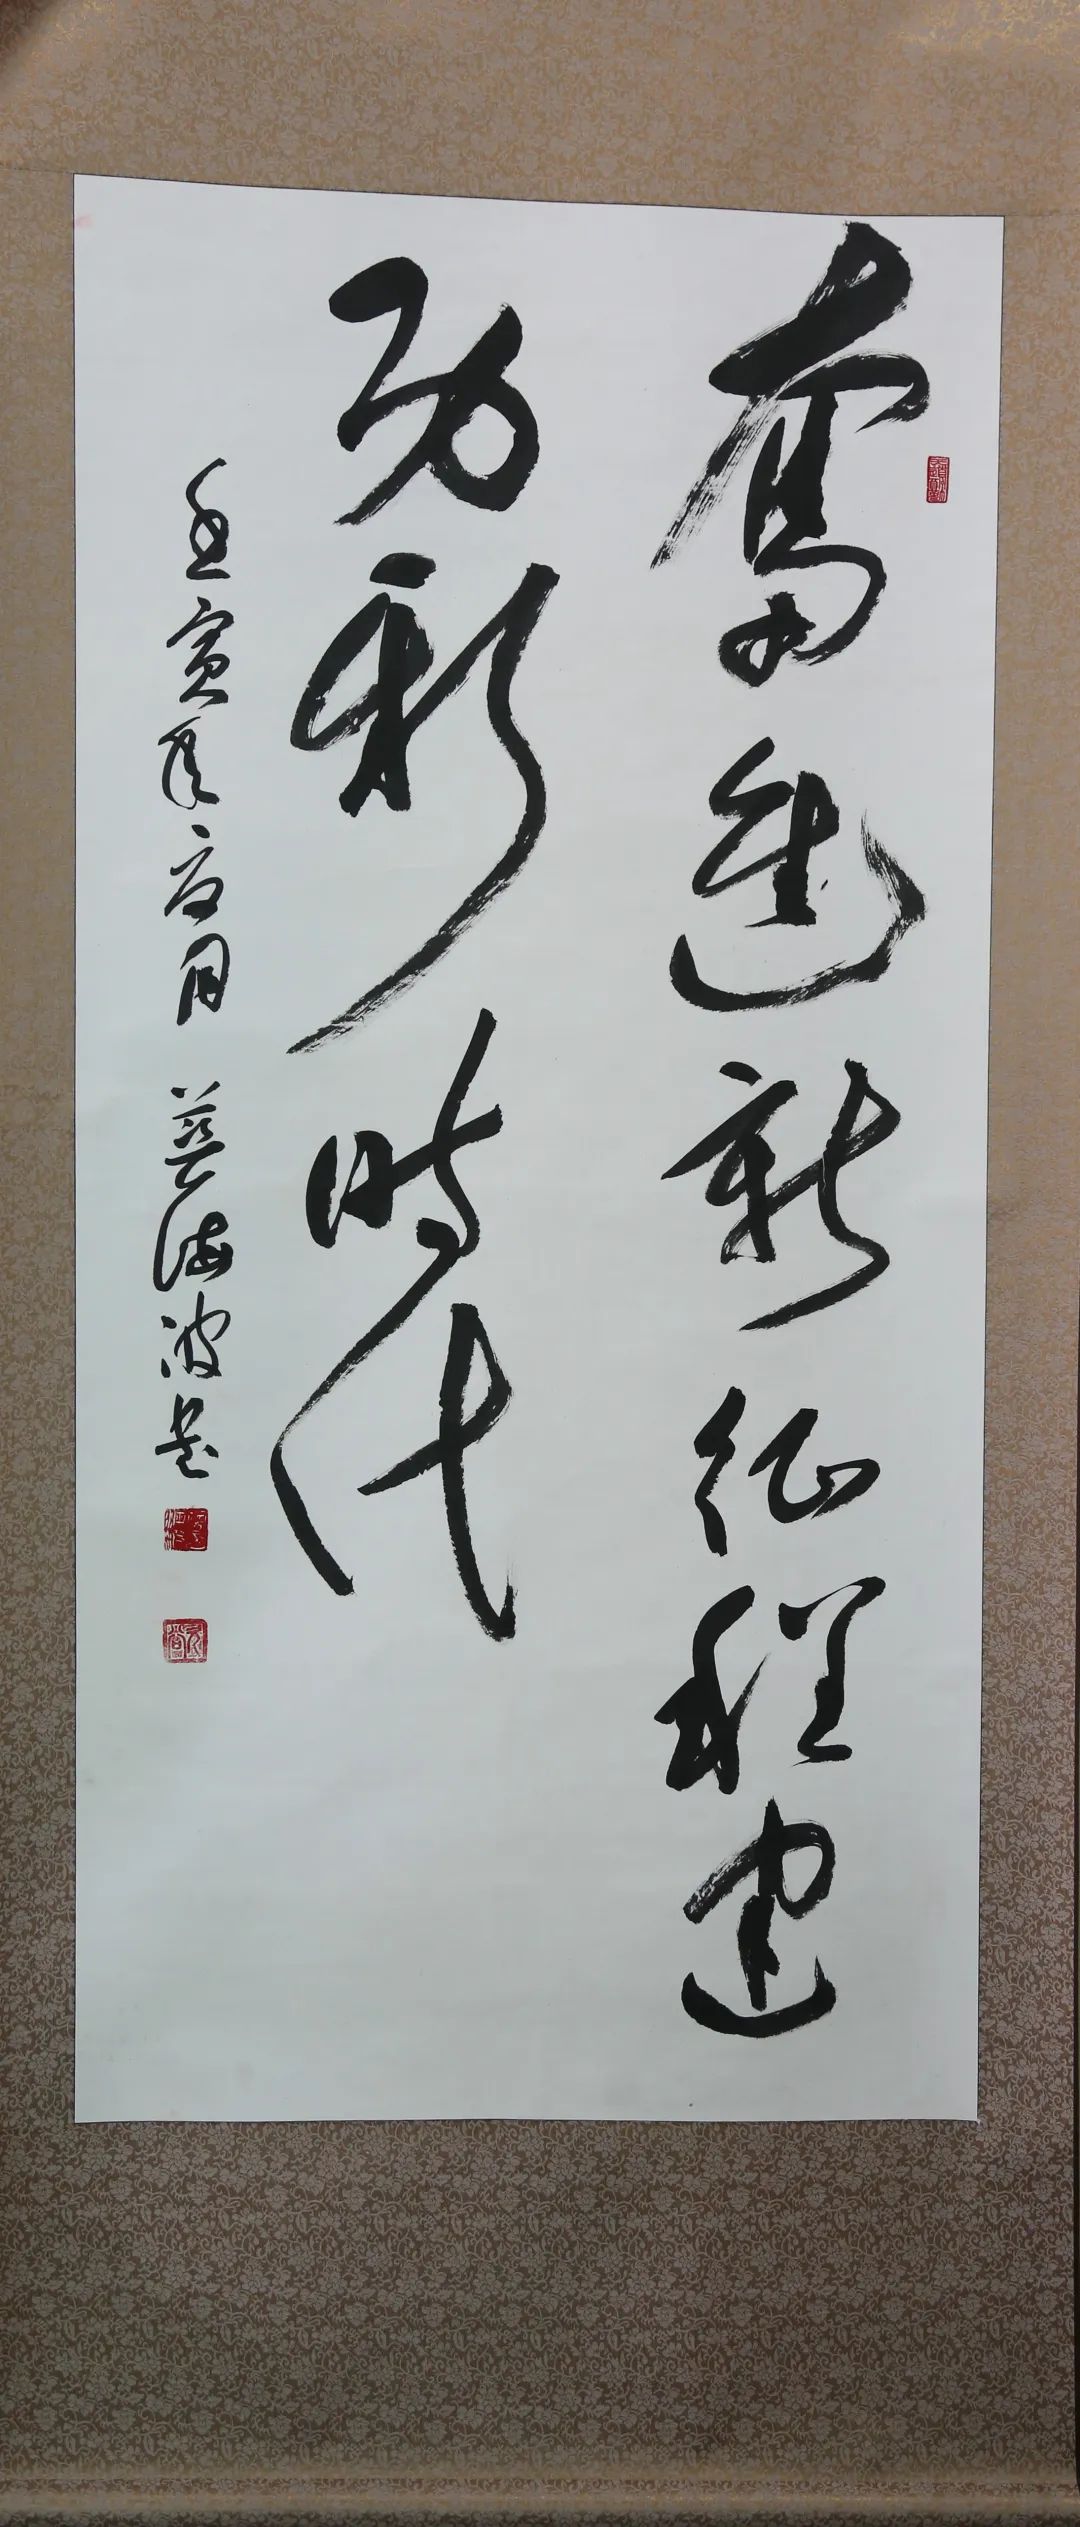 奮進新征程建
功新時代
壬寅年夏月 海波书